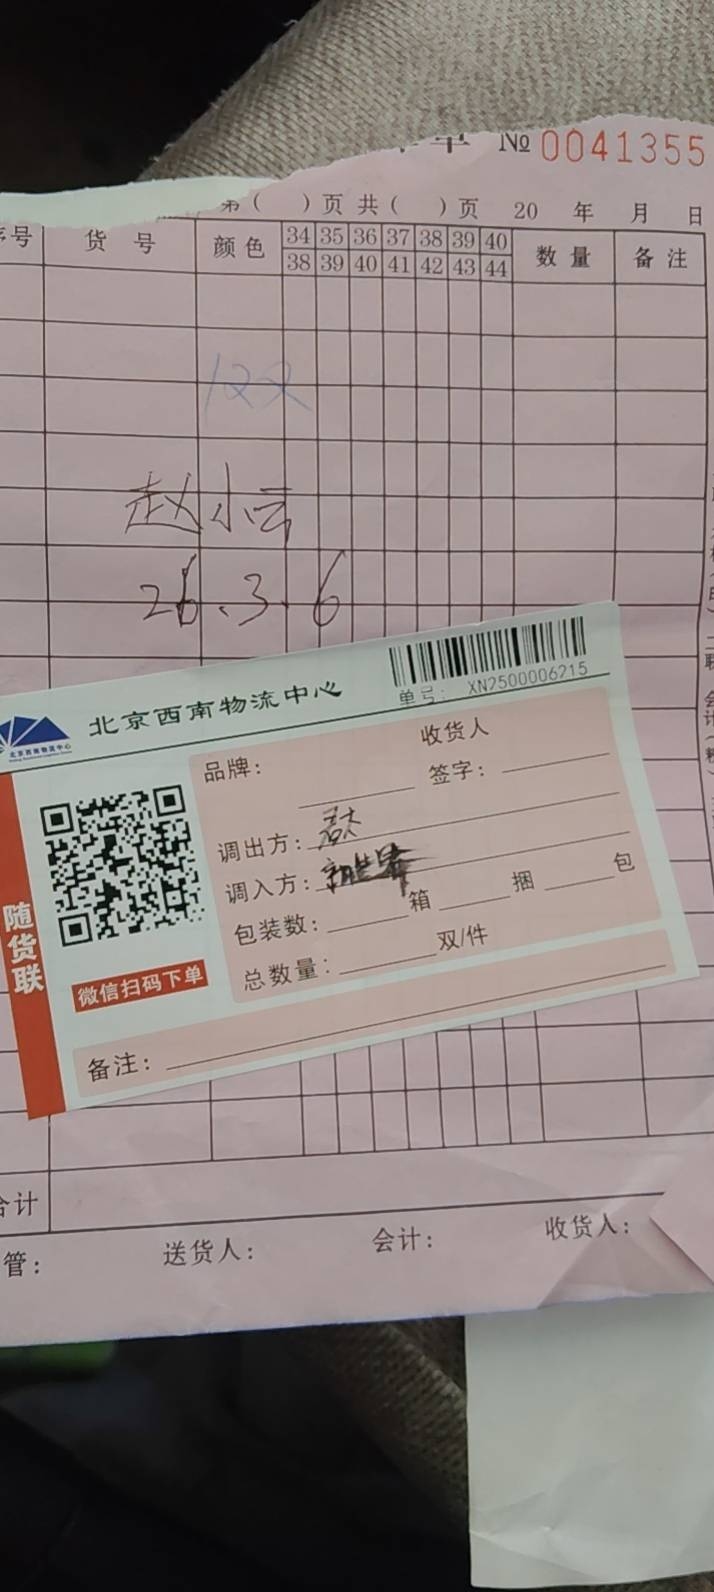 № 0041355
第( )页 共( )页 20 年 月 日
序号 货号 颜色 34 35 36 37 38 39 40 数量 备注
38 39 40 41 42 43 44
122
赵小云
26.3.6
北京西南物流中心
单号: XN2500006215
北京西南物流中心
品牌:
收货人
签字:
调出方:
调入方:
包装数: 箱 捆 包
总数量: 双/件
随货联
微信扫码下单
备注:
合计
管: 送货人: 会计: 收货人: